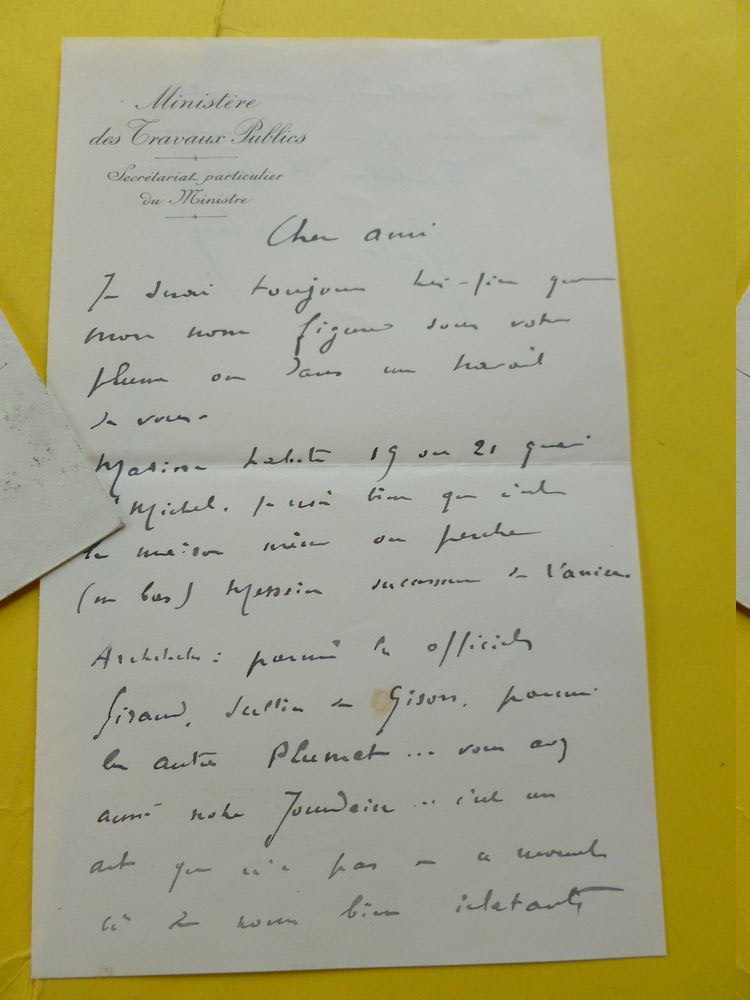 Ministère
des Travaux Publics
Secrétariat particulier
du Ministre
Cher ami
Je serai toujours très-fier que
mon nom figure sous votre
plume ou dans un travail
de vous.
19 ou 21 quai
Michel. Je crois bien que c'est
la maison même ou perche
(en bas) Messein successeur de Vanier.
Architectes : parmi les officiels
Girault, de Gisors, parmi
les autres Plumet ... vous avez
aussi notre Jourdain .. c'est un
art qui n'a pas en ce moment
2 noms bien éclatants